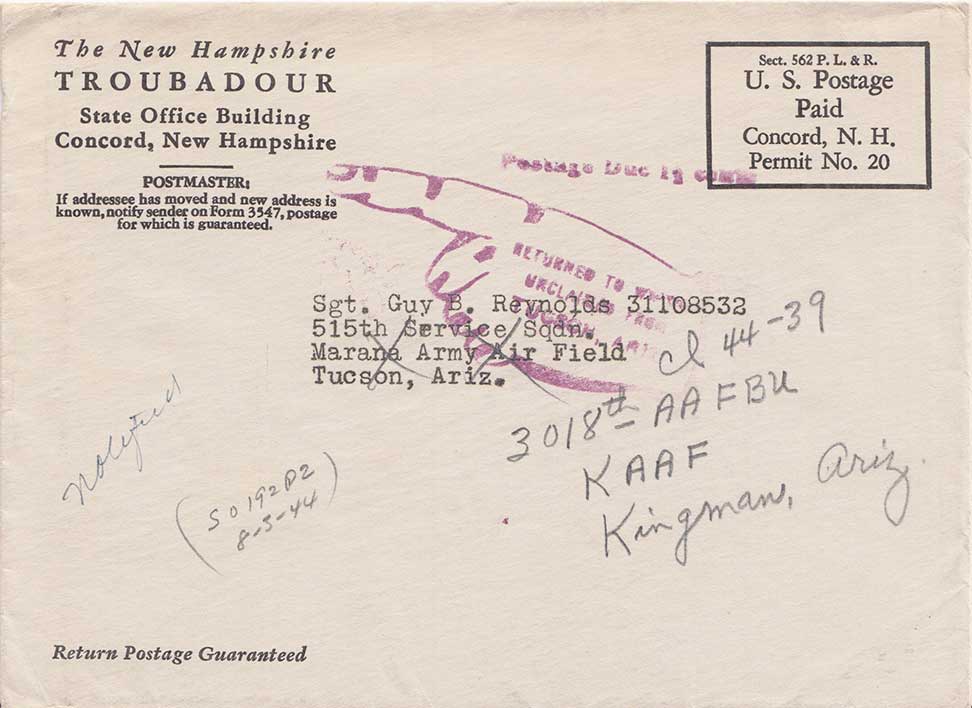 The New Hampshire
TROUBADOUR
State Office Building
Concord, New Hampshire
POSTMASTER:
If addressee has moved and new address is
known, notify sender on Form 3547, postage
for which is guaranteed.
Sect. 562 P. L. & R.
U. S. Postage
Paid
Concord, N. H.
Permit No. 20
Postage Due
RETURNED TO
UNCLAIMED FROM
Sgt. Guy B. Reynolds 31108532
515th Service Sqdn.
Marana Army Air Field
Tucson, Ariz.
cl 44-39
3018th AAFBU
KAAF
Kingman, Ariz.
Notified
(SO 192 P2
8-3-44)
Return Postage Guaranteed